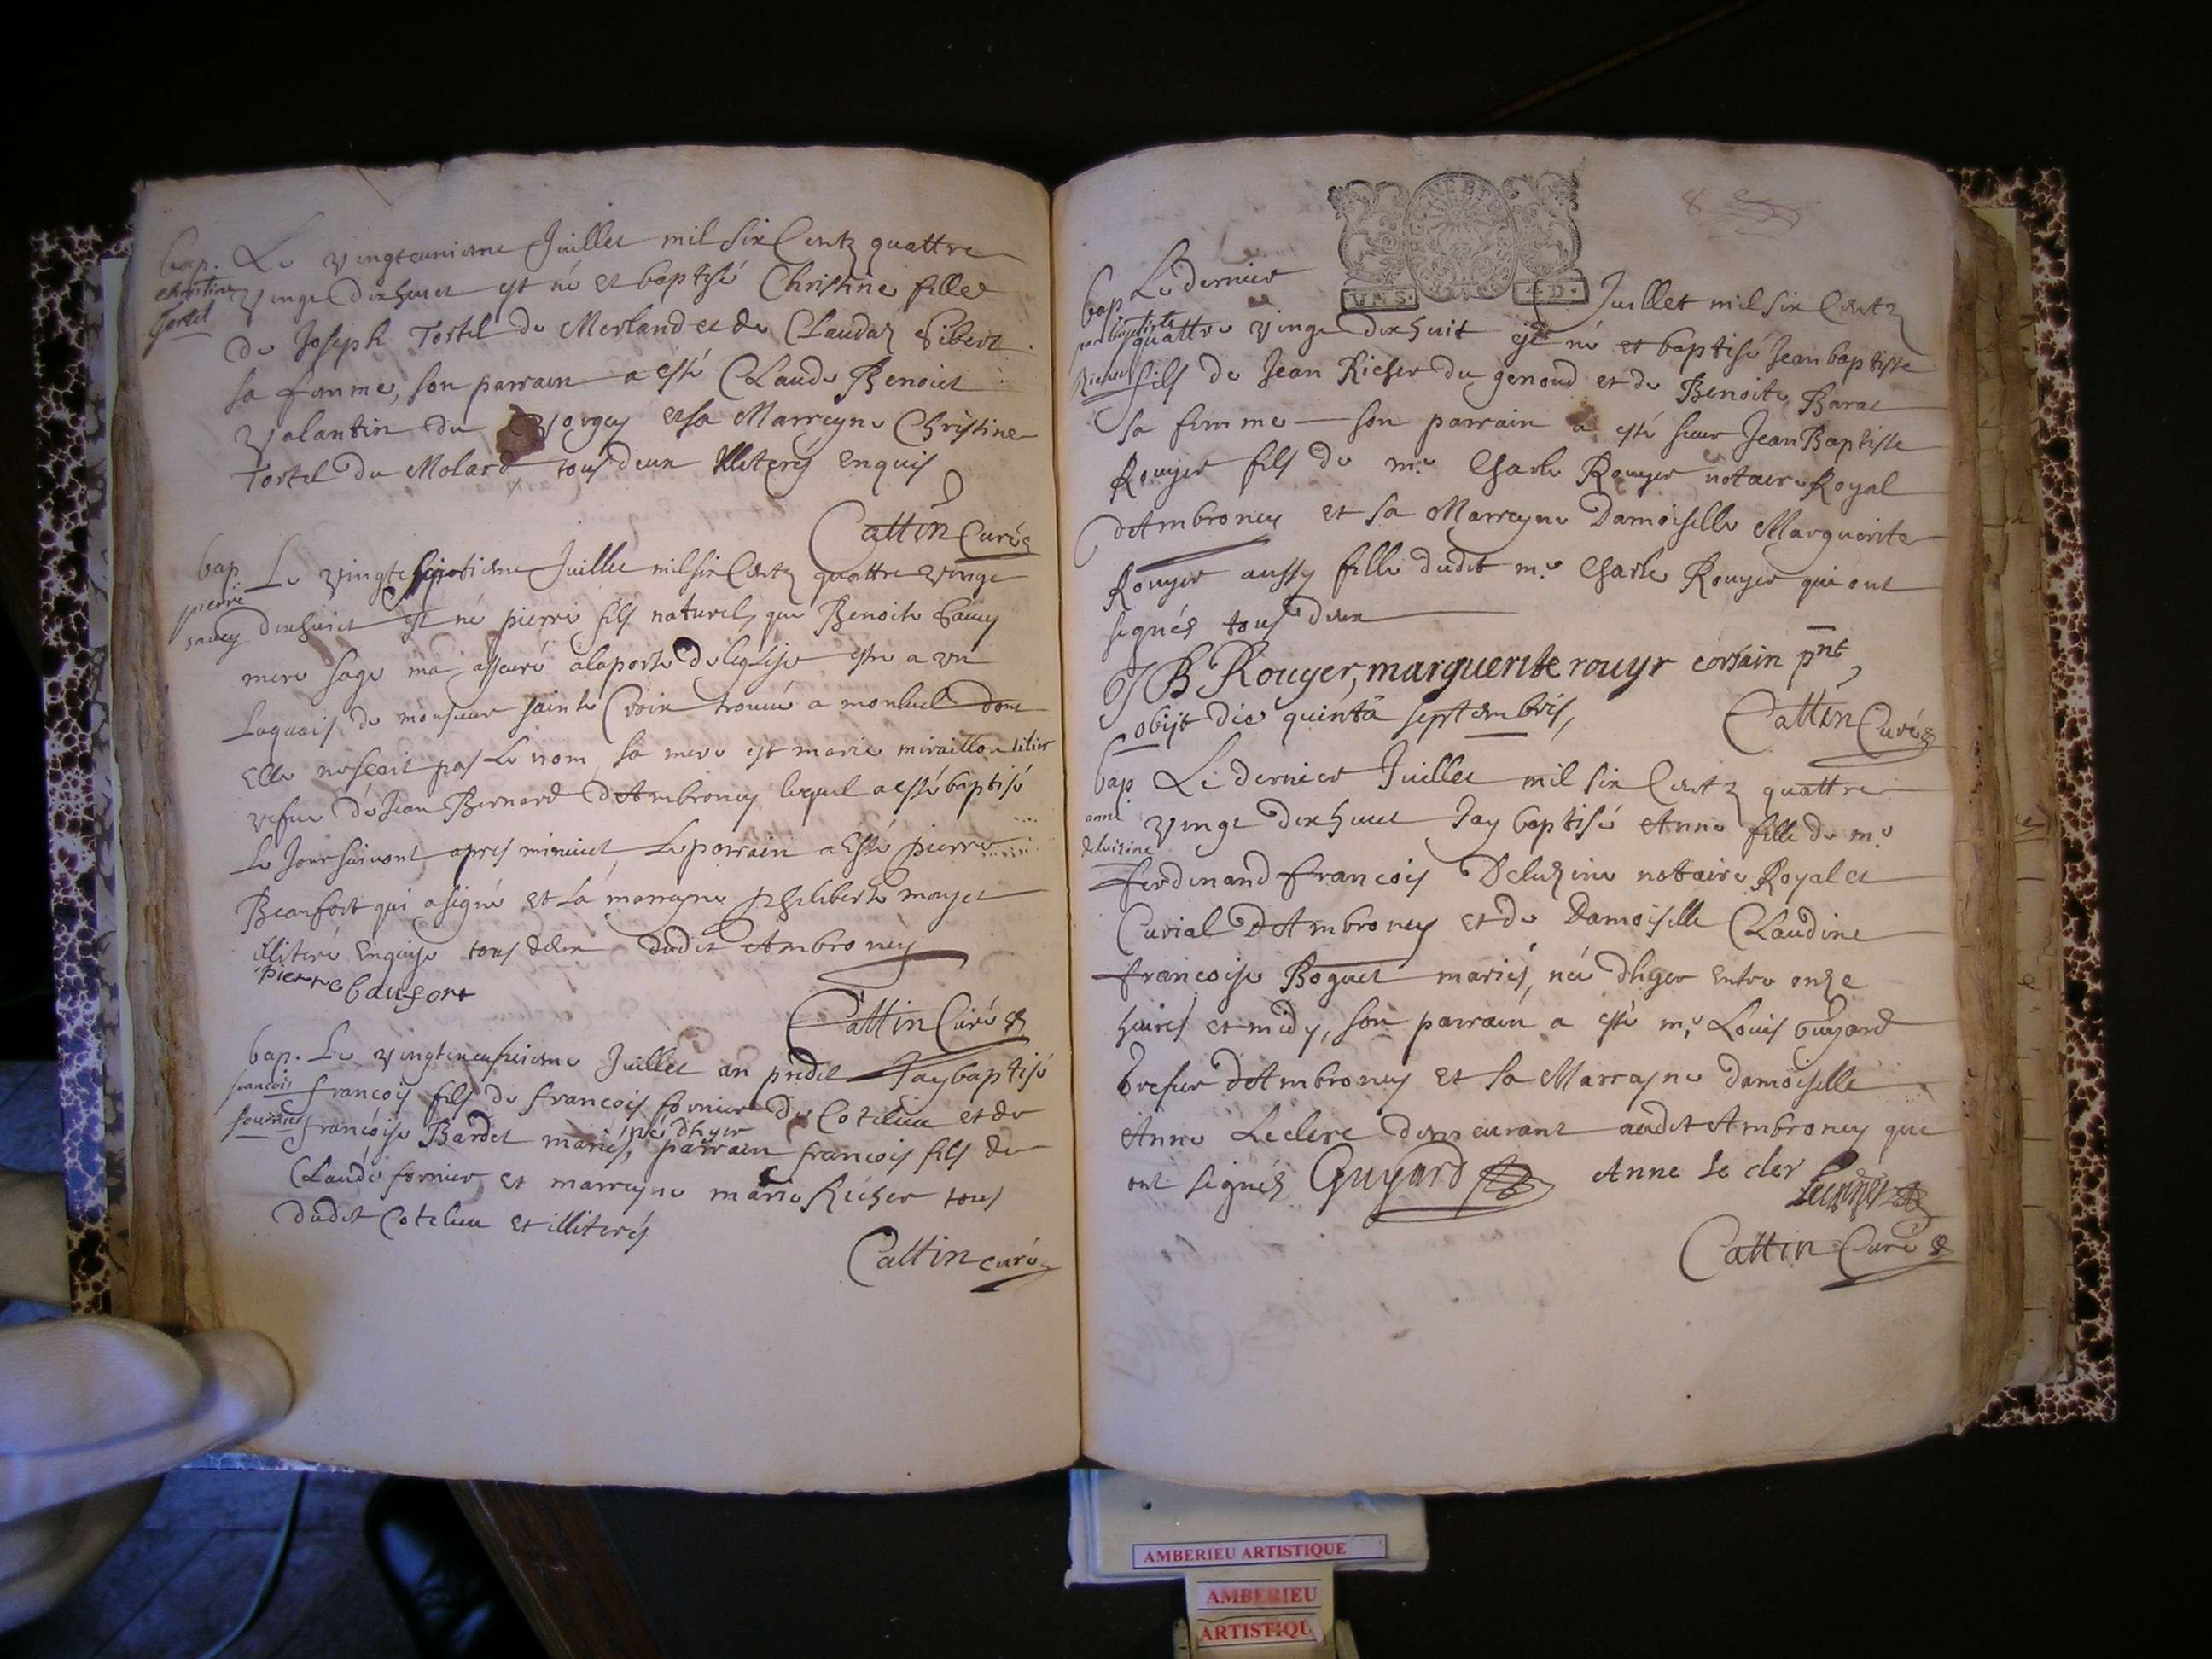 bap. Le vingteunieme Juillet mil six Centz quattre
christine
Tortel
vingt dixhuict est né et baptisé Christine fille
de Joseph Tortel de Merland et de Claudaz Sibert
sa femme, son parrain a esté Claude Benoict
valantin du vorgey et sa Marrayne Christine
Tortel du Molard tous deux Illiterés enquis
Cattin Curé
bap. Le vingteseptieme Juillet mil six Centz quattre vingt
pierre
savey
dixhuict est né pierre fils naturel, que Benoite savey
mere sage ma asseuré a la porte de leglise estre a un
Laquais de monsieur sainte Croix trouvé a monluel dont
Elle ne scait pas Le nom, sa mere est marie
vefue de Jean Bernard dAmbronay lequel a esté baptisé
Le Jour suivant apres minuict Le parrain a Esté pierre
Beaufort qui a signé et la marrayne philiberte mayet
illiteré Enquise tous deux dudit Ambronay
pierre baufort
Cattin Curé
bap. Le vingtneufvieme Juillet an predit Jay baptisé
francois
fournier
francois fils de francois fornier de Cotelieu et de
né dhyer
francoise Bardet mariés, parrain francois fils de
Claude fornier et marrayne marie Richer tous
dudit Cotelieu et illiterés
Cattin curé
8
bap. Le dernier Juillet mil six Centz
jean baptiste
Richer
quattre vingt dixhuit est né et baptisé Jean baptiste
fils de Jean Richer du genoud et de Benoite Barat
sa femme son parrain a esté sieur Jean Baptiste
Rouyer fils de me Charle Rouyer notaire Royal
dAmbronay et sa Marrayne Damoiselle Marguerite
Rouyer aussy fille dudit me Charle Rouyer qui ont
signés tous deux
J B Rouyer, marguerite rouyr corsain pnt
obijt die quinta septembris,
Cattin Curé
bap. Le dernier Juillet mil six Centz quattre
anne
deluizine
vingt dixhuict Jay baptisé Anne fille de me
ferdinand francois Deluzine notaire Royal et
Curial dAmbronay et de Damoiselle Claudine
francoise Boguet mariés, née dhyer entre onze
heures et midy, son parrain a esté me Louis Guyard
Greffier dAmbronay et sa Marrayne damoiselle
Anne Leclerc demeurant audit Ambronay qui
ont signés Guyard Anne le cler
Cattin Curé
AMBERIEU ARTISTIQUE
AMBERIEU
ARTISTIQU